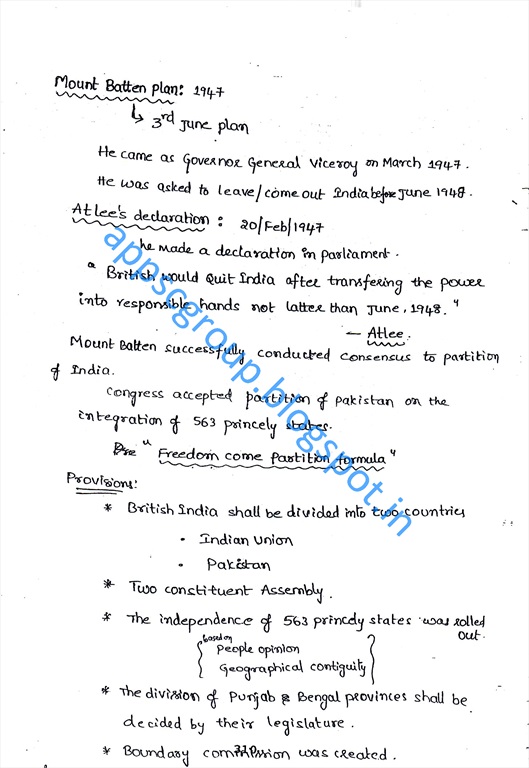 Mount Batten plan: 1947
↳ 3rd June plan
He came as Governor General Viceroy on March 1947.
He was asked to leave/come out India before June 1948.
Atlee's declaration: 20/Feb/1947
he made a declaration in parliament.
" British would Quit India after transfering the power
into responsible hands not latter than June, 1948. "
— Atlee.
Mount Batten successfully conducted consensus to partition
of India.
Congress accepted partition of pakistan on the
integration of 563 princely states.
" Freedom come partition formula "
Provisions:
* British India shall be divided into two countries
• Indian Union
• Pakistan
* Two constituent Assembly.
* The independence of 563 princely states was rolled
out.
based on
People opinion
Geographical contiguity
* The division of Punjab & Bengal provinces shall be
decided by their legislature.
* Boundary commission was created.
310
appscgroup.blogspot.in